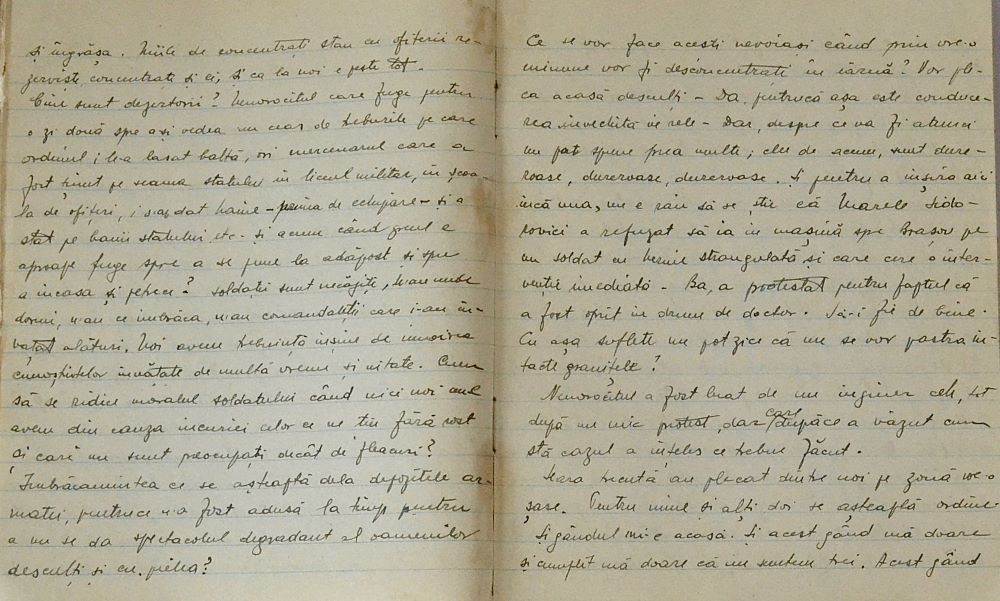 și îngrășa. Miile de concentrați stau cu ofițerii re-
zerviști, concentrați și ei, și ca la noi e peste tot.
Cine sunt dezertorii? Nenorocitul care fuge pentru
o zi două spre a-și vedea un ceas de treburile pe care
ordinul i le-a lăsat baltă, ori mercenarul care a
fost ținut pe seama statului în liceul militar, în școa-
la de ofițeri, i s-au dat haine - prima de echipare - și a
stat pe banii statului, etc. și acum când greul e
aproape fuge spre a se pune la adăpost și spre
a încasa și petrece? Soldații sunt necăjiți, n-au unde
dormi, n-au ce îmbrăca, n-au comandanții care i-au în-
vățat alături. Noi avem trebuință înșine de înnoirea
cunoștințelor învățate de multă vreme și uitate. Cum
să se ridice moralul soldatului când nici noi nu-l
avem din cauza incuriei celor ce ne țin fără rost
și cari nu sunt preocupați decât de flacuri?
Îmbrăcămintea ce se așteaptă dela depozitele ar-
matei, pentruce n-a fost adusă la timp pentru
a nu se da spectacolul degradant al oamenilor
desculți și cu pielea?
Ce se vor face acești nevoiași când prin vre-o
minune vor fi desconcentrați în iarnă? Vor ple-
ca acasă desculți - Da, pentrucă așa este conduce-
rea învechită în rele - Dar, despre ce va fi atunci
nu pot spune prea multe; cele de acum, sunt dure-
roase, dureroase, dureroase. Și pentru a înșira aici
încă una, nu e rău să se știe că Marele Sido-
rovici a refuzat să ia în mașină spre Brașov pe
un soldat cu hernie strangulată și care cere o inter-
venție imediată - Ba, a protestat pentru faptul că
a fost oprit în drum de doctor. Să-i fie de bine.
Cu așa suflete nu pot zice că nu se vor păstra in-
tacte granițele?
Nenorocitul a fost luat de un inginer ceh, tot
după un mic protest, dar care după ce a văzut cum
stă cazul a înțeles ce trebue făcut.
Seara trecută au plecat dintre noi pe zonă vre-o
șase. Pentru mine și alți doi se așteaptă ordine
Și gândul mi-e acasă. Și acest gând mă doare
și cumplit mă doare că nu suntem trei. Acest gând